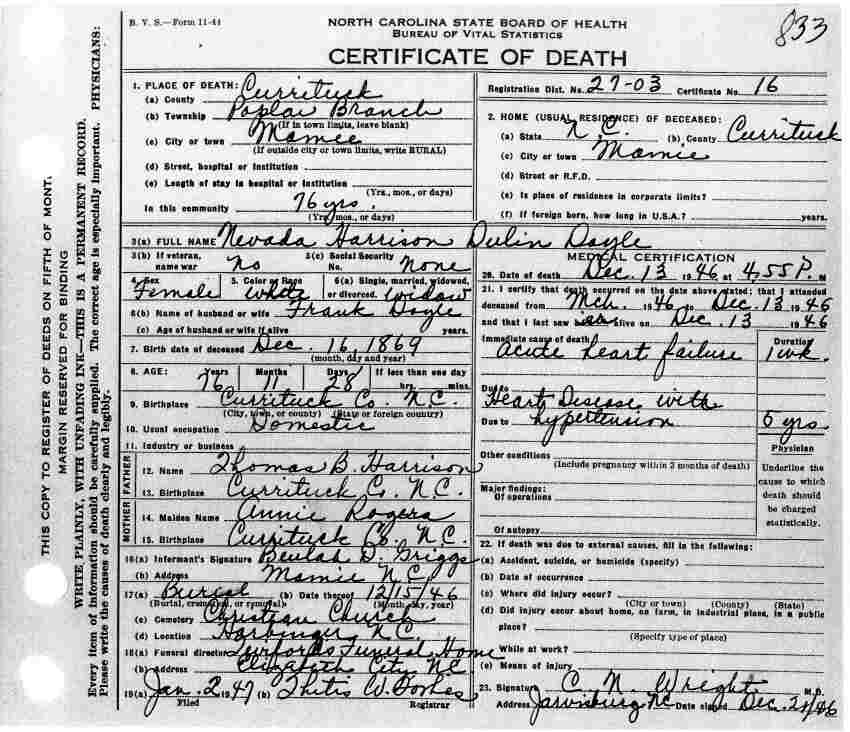 B. V. S.—Form 11-44
NORTH CAROLINA STATE BOARD OF HEALTH
BUREAU OF VITAL STATISTICS
CERTIFICATE OF DEATH
833
THIS COPY TO REGISTER OF DEEDS ON FIFTH OF MONT.
MARGIN RESERVED FOR BINDING
WRITE PLAINLY, WITH UNFADING INK—THIS IS A PERMANENT RECORD.
Every item of information should be carefully supplied. The correct age is especially important. PHYSICIANS:
Please write the causes of death clearly and legibly.
1. PLACE OF DEATH:
(a) County Currituck
(b) Township Poplar Branch
(If in town limits, leave blank)
(c) City or town Mamie
(If outside city or town limits, write RURAL)
(d) Street, hospital or institution
(e) Length of stay in hospital or institution
(Yrs., mos., or days)
In this community 76 yrs.
(Yrs., mos., or days)
Registration Dist. No. 27-03 Certificate No. 16
2. HOME (USUAL RESIDENCE) OF DECEASED:
(a) State N.C. (b) County Currituck
(c) City or town Mamie
(d) Street or R.F.D.
(e) Is place of residence in corporate limits?
(f) If foreign born, how long in U.S.A.? years.
3(a) FULL NAME Nevada Harrison Dulin Doyle
3(b) If veteran, name war no
3(c) Social Security No. None
4. Sex Female
5. Color or Race white
6(a) Single, married, widowed, or divorced. widow
6(b) Name of husband or wife Frank Doyle
(c) Age of husband or wife if alive years.
7. Birth date of deceased Dec. 16, 1869
(month, day and year)
8. AGE: Years Months Days If less than one day
76 11 28 hrs. mins.
9. Birthplace Currituck Co. N.C.
(City, town, or county) (State or foreign country)
10. Usual occupation Domestic
11. Industry or business
FATHER
12. Name Thomas B. Harrison
13. Birthplace Currituck Co. N.C.
MOTHER
14. Maiden Name Annie Rogers
15. Birthplace Currituck Co. N.C.
16(a) Informant's Signature Beulah D. Griggs
(b) Address Mamie N.C.
17(a) Burial (b) Date thereof 12/15/46
(Burial, cremation, or removal) (Month, day, year)
(c) Cemetery Christian Church
(d) Location Harbinger, N.C.
18(a) Funeral director Funeral Home
(b) Address Elizabeth City, N.C.
19(a) Jan. 2 1947 (b) W. Forbes
Filed Registrar
MEDICAL CERTIFICATION
20. Date of death Dec. 13 1946 at 4.55 P. M
21. I certify that death occurred on the date above stated; that I attended
deceased from Mch. 1946 to Dec. 13 1946
and that I last saw alive on Dec. 13 1946
Immediate cause of death Duration
Acute heart failure 1 wk.
Due to
Heart Disease with
Due to hypertension 5 yrs
Other conditions
(Include pregnancy within 3 months of death)
Major findings:
Of operations
Of autopsy
Physician
Underline the cause to which death should be charged statistically.
22. If death was due to external causes, fill in the following:
(a) Accident, suicide, or homicide (specify)
(b) Date of occurrence
(c) Where did injury occur?
(City or town) (County) (State)
(d) Did injury occur about home, on farm, in industrial place, in a public
place?
(Specify type of place)
While at work?
(e) Means of injury
23. Signature C. N. Wright M.D.
Address Jarvisburg NC Date signed Dec. 46